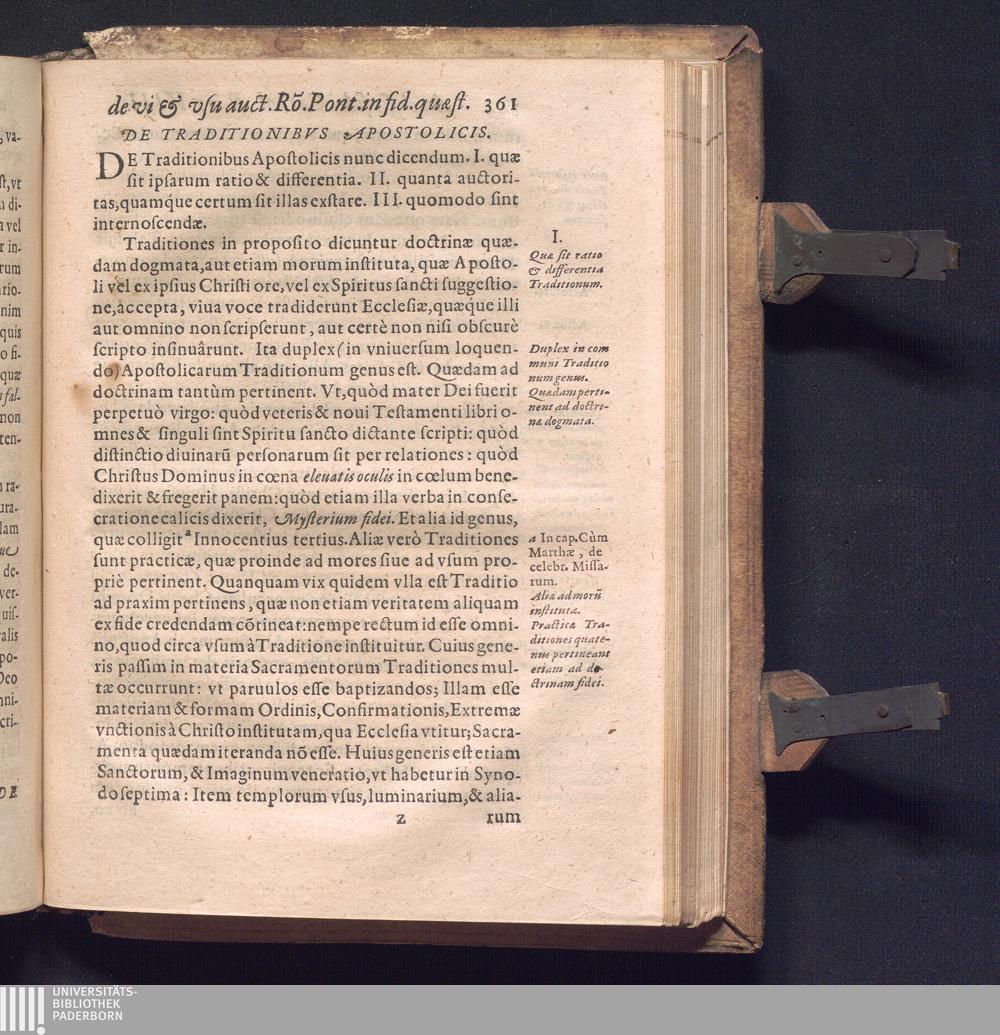 de vi & vſu auct. Rõ. Pont. in fid. quæſt. 361
DE TRADITIONIBVS APOSTOLICIS.
DE Traditionibus Apoſtolicis nunc dicendum. I. quæ
ſit ipſarum ratio & differentia. II. quanta auctori-
tas, quamq́ue certum ſit illas exſtare. III. quomodo ſint
internoſcendæ.
Traditiones in propoſito dicuntur doctrinæ quæ-
dam dogmata, aut etiam morum inſtituta, quæ Apoſto-
li vel ex ipſius Chriſti ore, vel ex Spiritus ſancti ſuggeſtio-
ne, accepta, viua voce tradiderunt Eccleſiæ, quæq́ue illi
aut omnino non ſcripſerunt, aut certè non niſi obſcurè
ſcripto inſinuârunt. Ita duplex (in vniuerſum loquen-
do) Apoſtolicarum Traditionum genus eſt. Quædam ad
doctrinam tantùm pertinent. Vt, quòd mater Dei fuerit
perpetuò virgo: quòd veteris & noui Teſtamenti libri o-
mnes & ſinguli ſint Spiritu ſancto dictante ſcripti: quòd
diſtinctio diuinarũ perſonarum ſit per relationes: quòd
Chriſtus Dominus in cœna eleuatis oculis in cœlum bene-
dixerit & fregerit panem: quòd etiam illa verba in conſe-
cratione calicis dixerit, Myſterium fidei. Et alia id genus,
quæ colligit a Innocentius tertius. Aliæ verò Traditiones
ſunt practicæ, quæ proinde ad mores ſiue ad vſum pro-
priè pertinent. Quanquam vix quidem vlla eſt Traditio
ad praxim pertinens, quæ non etiam veritatem aliquam
ex fide credendam cõtineat: nempe rectum id eſſe omni-
no, quod circa vſum à Traditione inſtituitur. Cuius gene-
ris paſſim in materia Sacramentorum Traditiones mul-
tæ occurrunt: vt paruulos eſſe baptizandos; Illam eſſe
materiam & formam Ordinis, Confirmationis, Extremæ
vnctionis à Chriſto inſtitutam, qua Eccleſia vtitur; Sacra-
menta quædam iteranda nõ eſſe. Huius generis eſt etiam
Sanctorum, & Imaginum veneratio, vt habetur in Syno-
do ſeptima: Item templorum vſus, luminarium, & alia-
z rum
I.
Quæ ſit ratio
& differentia
Traditionum.
Duplex in com
muni Traditio
num genus.
Quædam perti-
nent ad doctri-
næ dogmata.
a In cap. Cùm
Marthæ, de
celebr. Miſſa-
rum.
Alia ad morũ
inſtituta.
Practicæ Tra-
ditiones quate-
nus pertineant
etiam ad do-
ctrinam fidei.
UNIVERSITÄTS-
BIBLIOTHEK
PADERBORN